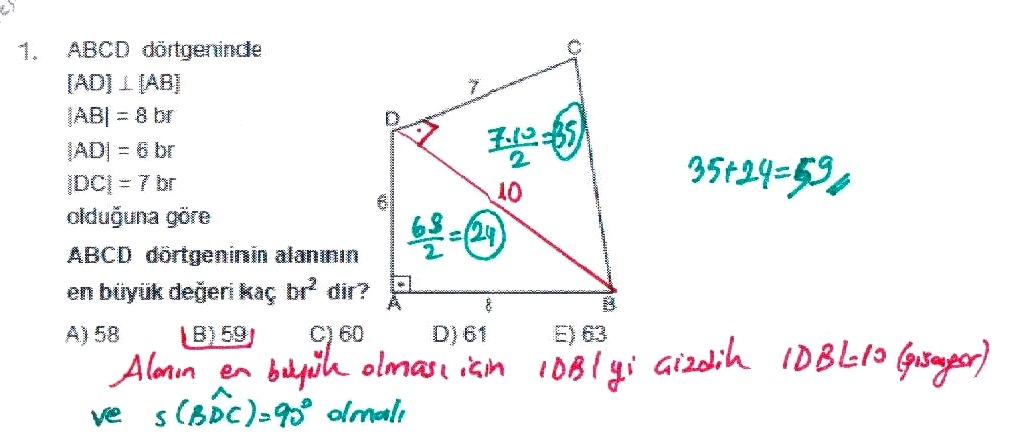 1. ABCD dörtgeninde
[AD] ⊥ [AB]
|AB| = 8 br
|AD| = 6 br
|DC| = 7 br
olduğuna göre
ABCD dörtgeninin alanının
en büyük değeri kaç br² dir?
A) 58 B) 59 C) 60 D) 61 E) 63
C
7
D
7.10/2 = 35
10
6
6.8/2 = 24
A
8
B
35+24=59
Alanın en büyük olması için |DB| yi çizdik |DB|=10 (pisagor)
ve s(BDC)=90° olmalı